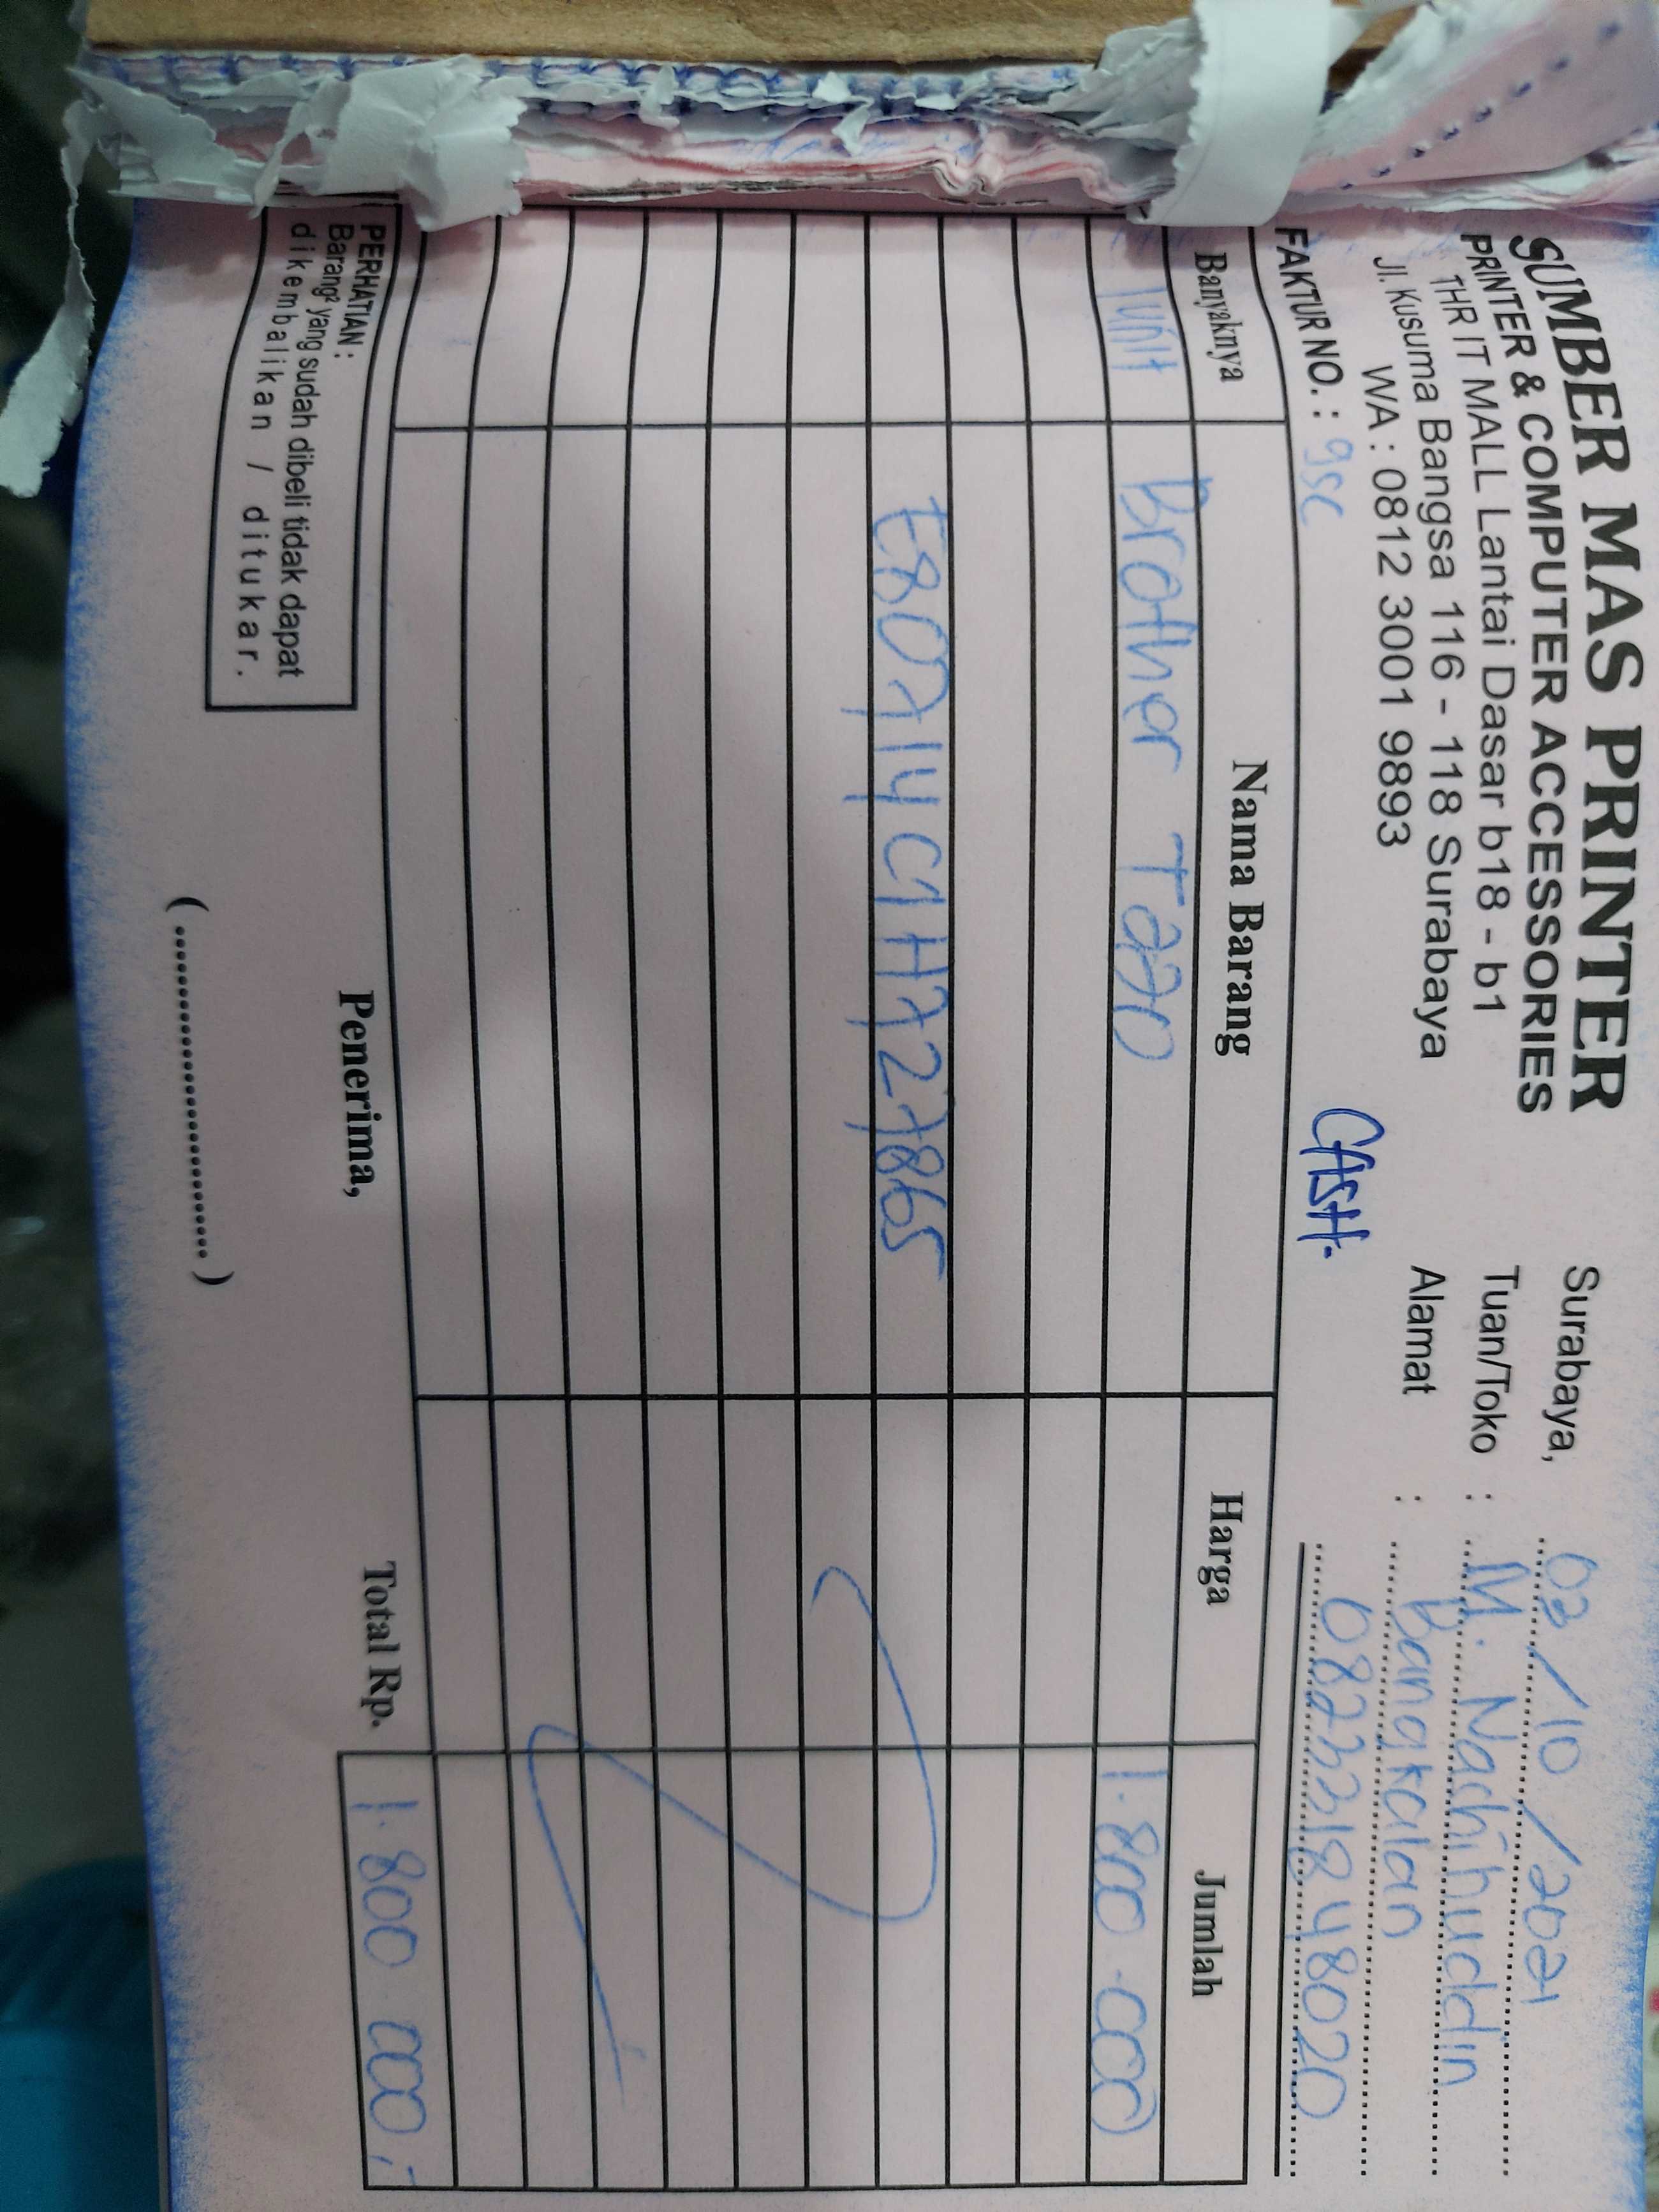 SUMBER MAS PRINTER
PRINTER & COMPUTER ACCESSORIES
THR IT MALL Lantai Dasar b18 - b1
Jl. Kusuma Bangsa 116 - 118 Surabaya
WA : 0812 3001 9893
Surabaya, 02/10/2021
Tuan/Toko : M. Nachihuddin
Alamat : Bangkalan
082331848020
FAKTUR NO. : gsc CASH.
Banyaknya Nama Barang Harga Jumlah
1 unit Brother T220 1.800.000
E80714C1H727865
PERHATIAN :
Barang² yang sudah dibeli tidak dapat
dikembalikan / ditukar.
Penerima,
(..............................)
Total Rp. 1.800.000,-